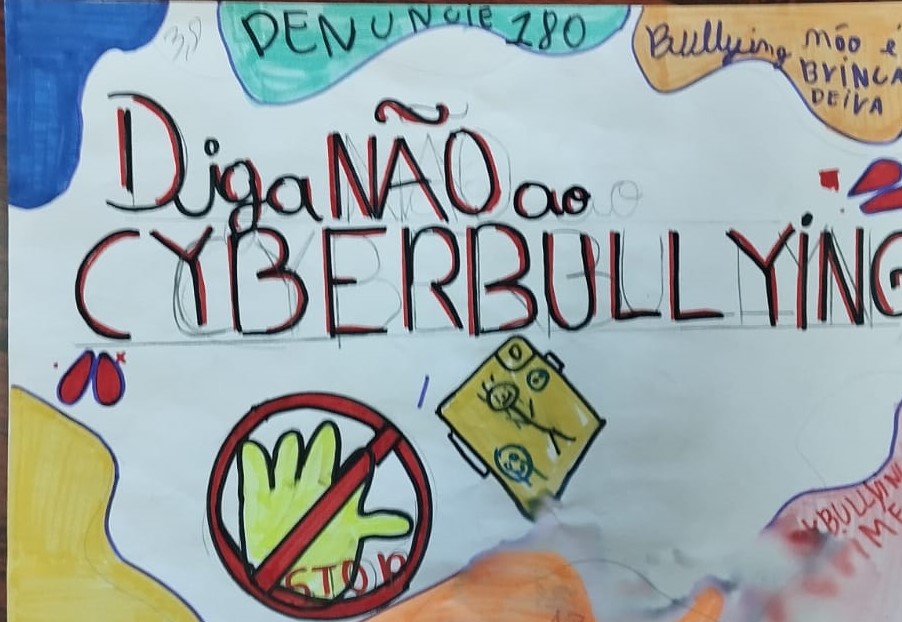 3,8
DENUNCIE 180
Bullying não é
BRINCA
DEIVA
Diga NÃO ao
CYBERBULLYING
STOP
BULLYING